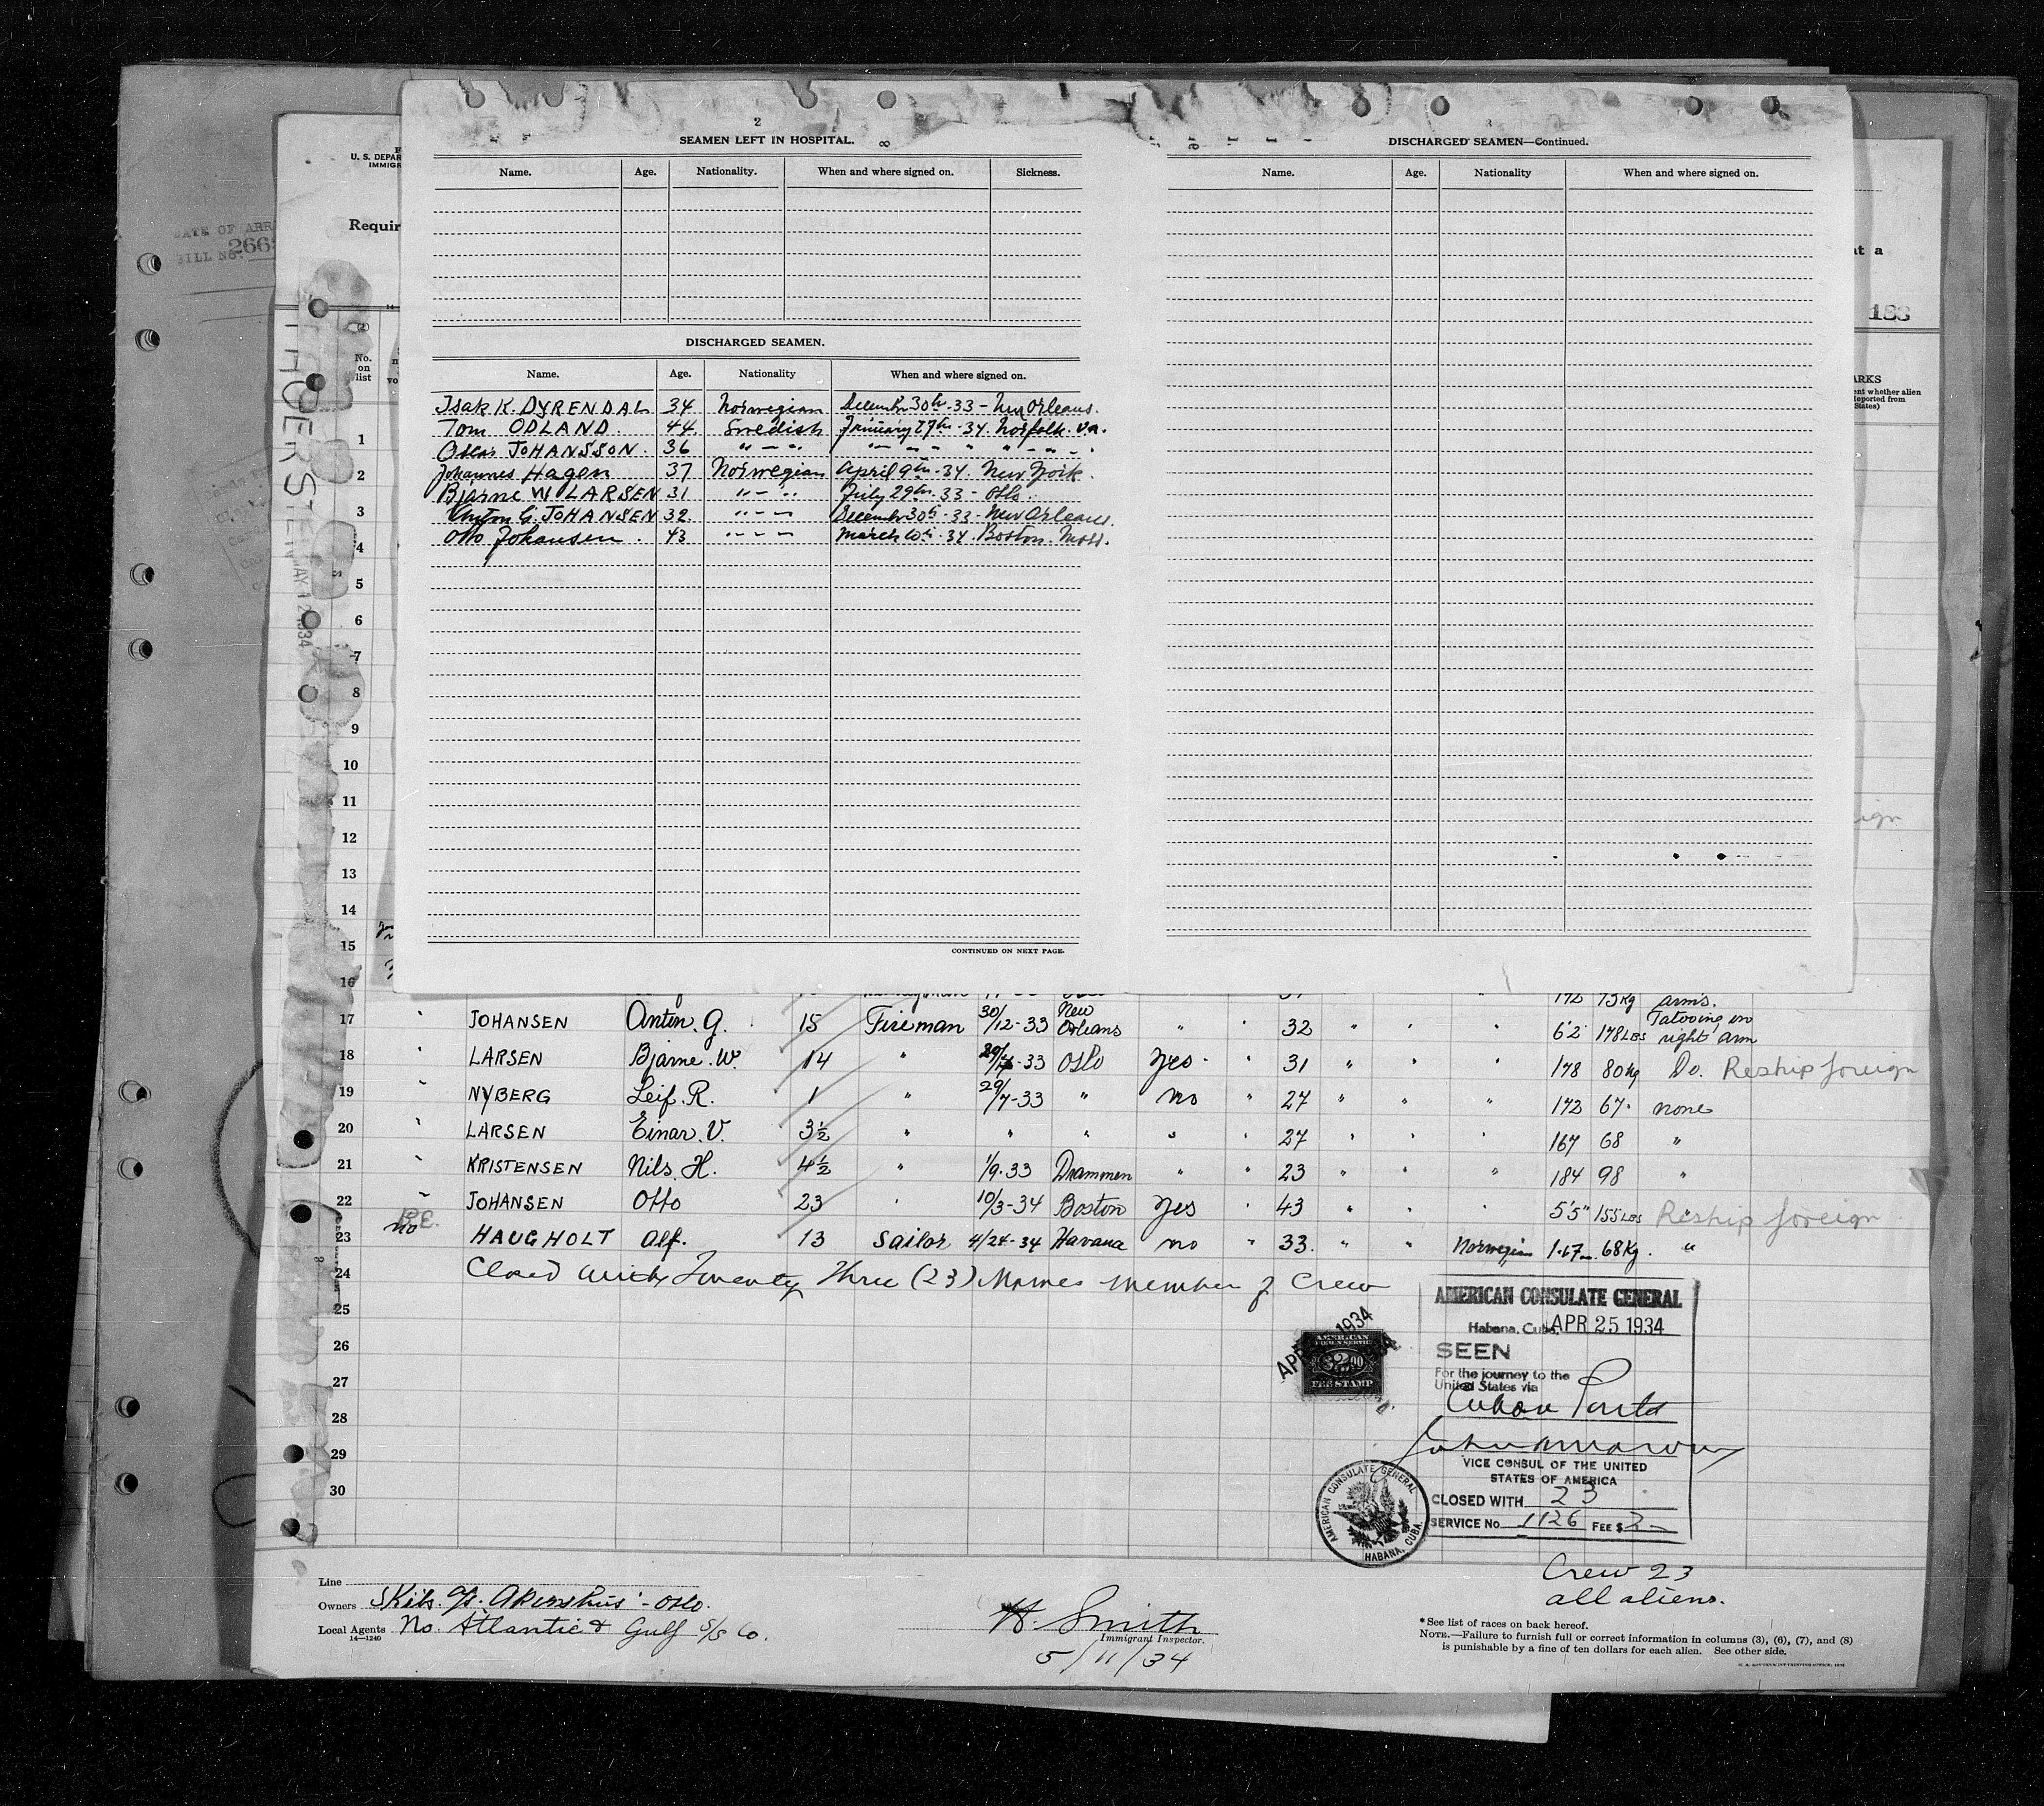 2
SEAMEN LEFT IN HOSPITAL.
8
Name. Age. Nationality. When and where signed on. Sickness.
DISCHARGED SEAMEN.
Name. Age. Nationality When and where signed on.
Isak K. DYRENDAL 34 Norwegian December 30th - 33 - New Orleans.
Tom ODLAND. 44. Swedish January 27th - 34. Norfolk. Va.
Oscar JOHANSSON. 36 " - " - " " - " " " " - " - "
Johannes Hagen 37 Norwegian April 9th - 34. New York.
Bjarne W LARSEN 31 " - " July 29th. 33 - Oslo.
Anton G. JOHANSEN 32. " - " - December 30th - 33 - New Orleans.
Otto Johansen. 43 " - " - March 10th - 34. Boston. Mass.
CONTINUED ON NEXT PAGE.
DISCHARGED SEAMEN—Continued.
Name. Age. Nationality When and where signed on.
U. S. DEPAR
IMMIGR
DATE OF ARR
BILL No. 266
Requir
at a
183
14
(2)
No. on list
ARKS
ent whether alien
deported from
States)
THOERSTEN
MAY 12 1934
1
2
3
4
5
6
7
8
9
10
11
12
13
14
15
16 172 73 Kg arms.
17 " JOHANSEN Anton. G. 15 Fireman 30/12-33 New Orleans " " 32 " " " 6'2 178 LBS Tatooing on right arm
18 " LARSEN Bjarne. W. 14 " 29/7-33 Oslo Yes " 31 " " " 178 80 Kg Do. Reship foreign
19 " NYBERG Leif. R. 1 " 29/7-33 " no " 27 " " " 172 67 " none
20 " LARSEN Einar. V. 3½ " " " " " 27 " " " 167 68 "
21 " KRISTENSEN Nils. H. 4½ " 1/9-33 Drammen " " 23 " " " 184 98 "
22 " JOHANSEN Otto 23 " 10/3-34 Boston Yes " 43 " " " 5'5" 155 LBS " Reship foreign
23 no P.E. HAUGHOLT Alf. 13 Sailor 4/24-34 Havana no " 33. " " Norwegian 1.67 68 Kg. "
24 Closed with Twenty Three (23) Names member of Crew
25
26
27
28
29
30
AMERICAN CONSULATE GENERAL
Habana, Cuba, APR 25 1934
SEEN
For the journey to the
United States via
Cuban Ports
VICE CONSUL OF THE UNITED
STATES OF AMERICA
CLOSED WITH 23
SERVICE No 1126 FEE $ 2-
AMERICAN
$2.00
FEE STAMP
AMERICAN CONSULATE GENERAL
HABANA, CUBA.
Line
Owners Skibs. A/S. Akershus - Oslo.
Local Agents No. Atlantic & Gulf S/S Co.
14—1240
H. Smith
Immigrant Inspector.
5/11/34
Crew 23
all aliens.
*See list of races on back hereof.
NOTE.—Failure to furnish full or correct information in columns (3), (6), (7), and (8)
is punishable by a fine of ten dollars for each alien. See other side.